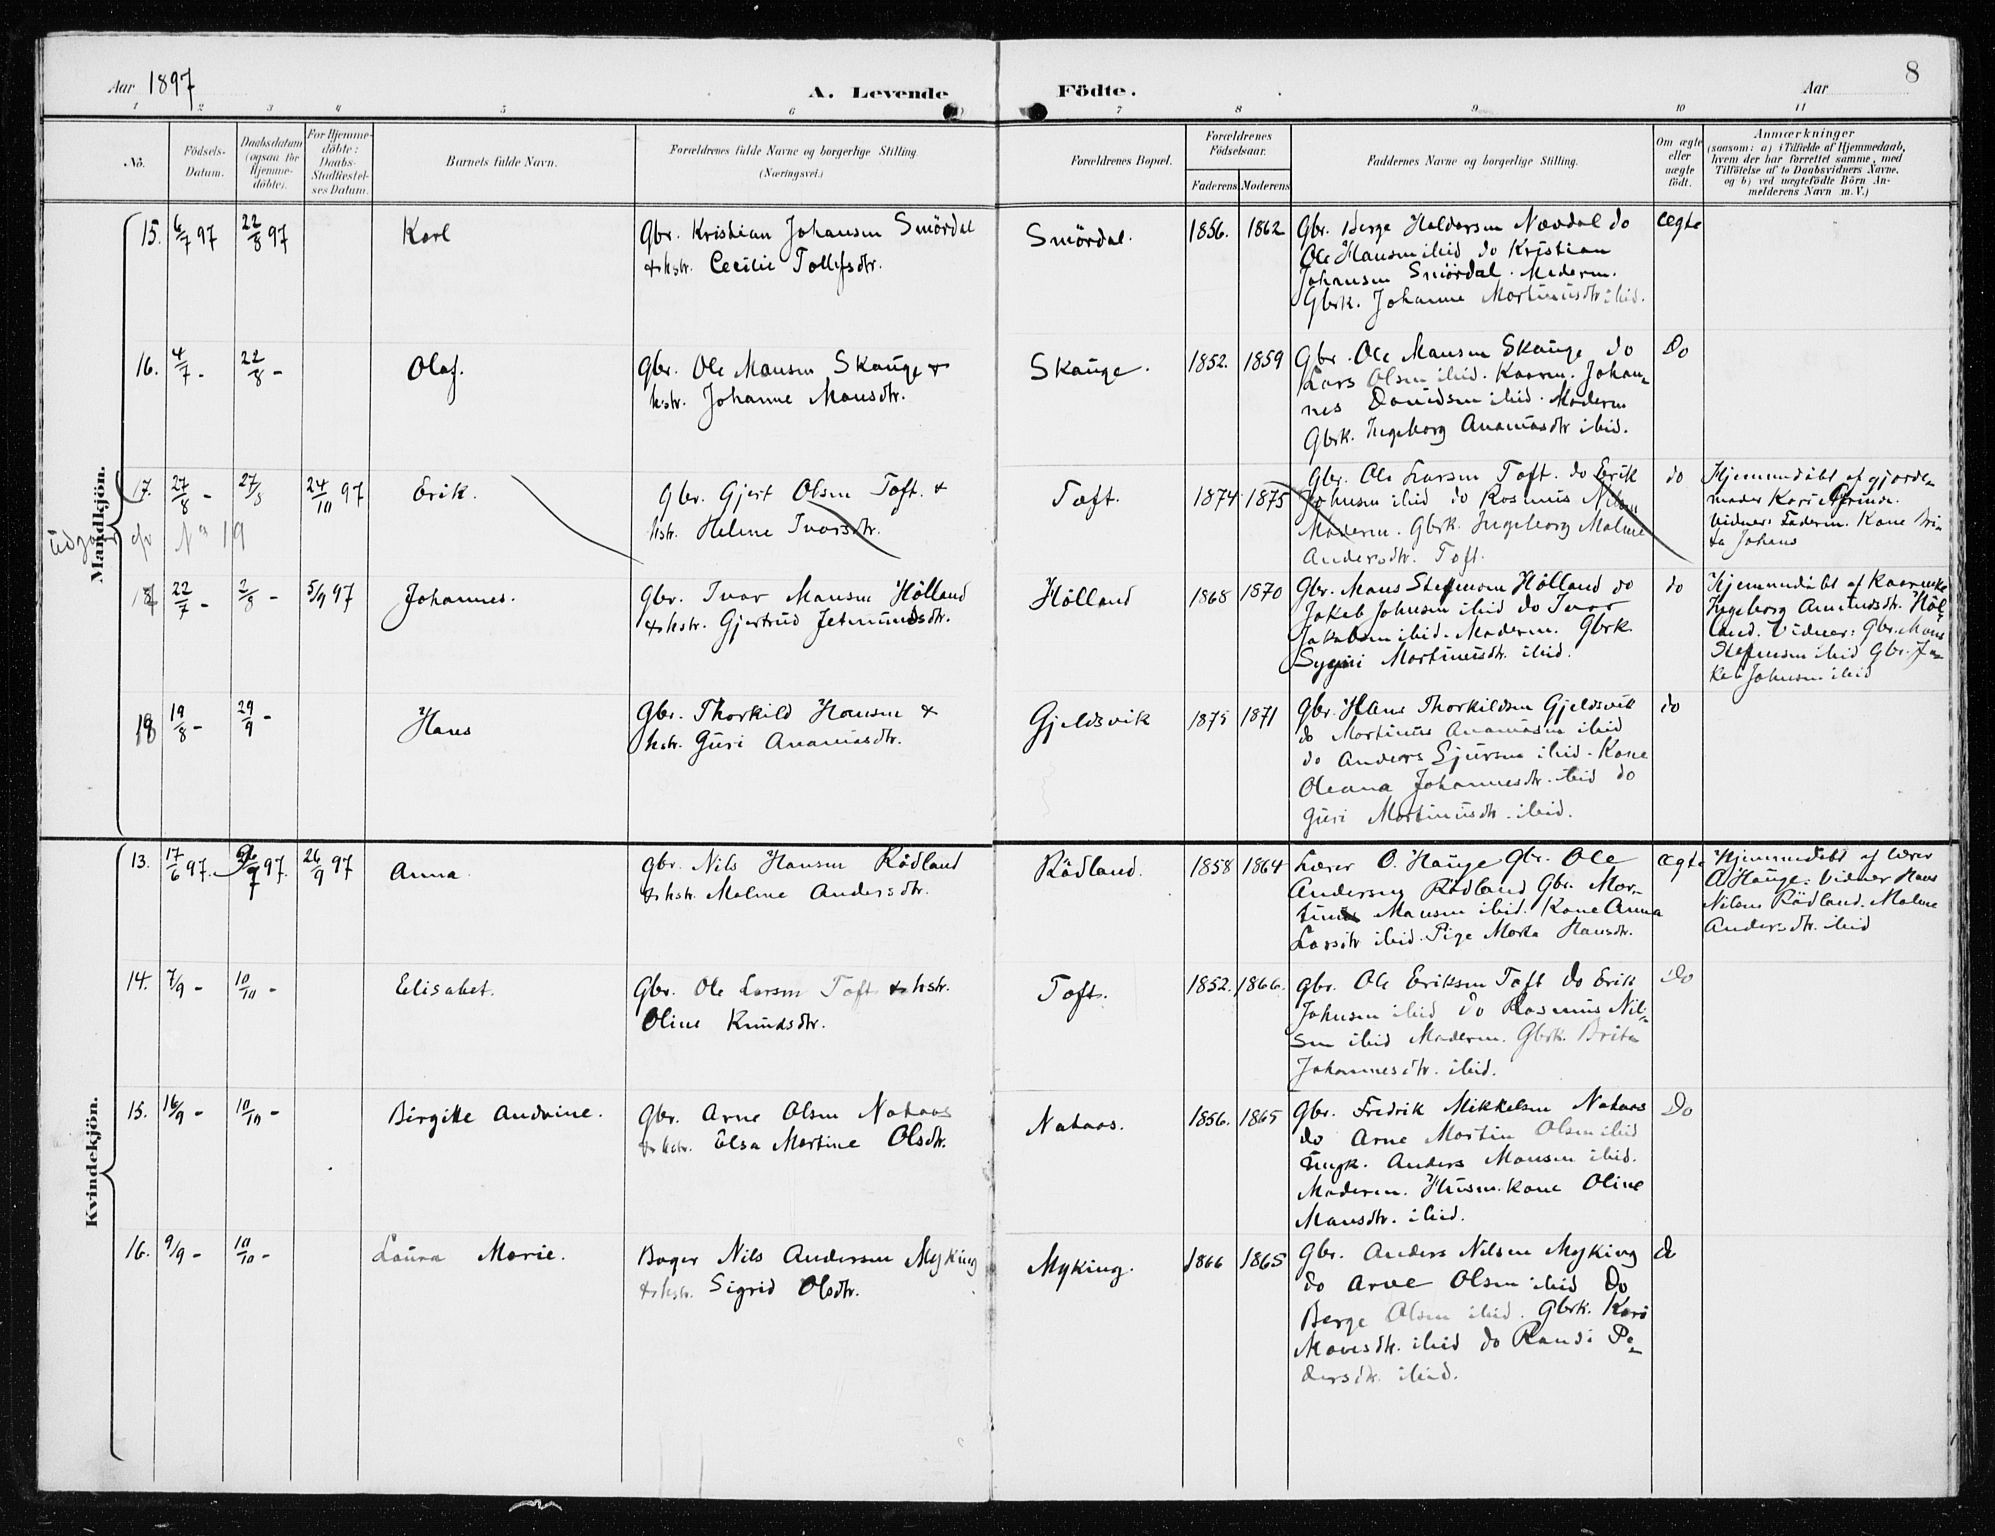 Aar 1897
A. Levende Födte.
Aar
8
1 2 3 4 5 6 7 8 9 10 11
No.
Födsels-
Datum.
Daabsdatum
(ogsaa for
Hjemme-
döbte).
For Hjemme-
döbte:
Daabs-
Stadfæstel-
ses Datum.
Barnets fulde Navn.
Forældrenes fulde Navne og borgerlige Stilling.
(Næringsvei.)
Forældrenes Bopæl.
Forældrenes
Födselsaar.
Faderens Moderens
Faddernes Navne og borgerlige Stilling.
Om ægte
eller
uægte
födt.
Anmærkninger
(saasom: a) i Tilfælde af Hjemmedaab,
hvem der har forrettet samme, med
Tilföielse af to Daabsvidners Navne,
og b) ved uægtefödte Börn An-
melderens Navn m. V.)
Mandkjön.
15. 6/7 97 22/8 97
Karl
Gbr. Kristian Johansen Smördal
& hstr. Cecilie Tollefsdtr.
Smördal.
1856. 1862
Gbr. Berge Haldorsen Nævdal do
Ole Hansen ibid do Kristian
Johansen Smördal. Moderen.
Gbrk. Johanne Martinusdtr ibid.
Ægte
16. 4/7 - 22/8 -
Olaf.
Gbr. Ole Monsen Skauge &
hstr. Johanne Monsdtr.
Skauge.
1852. 1859
Gbr. Ole Monsen Skauge do
Lars Olsen ibid. Kaarm. Johan-
nes Davidsen ibid. Moderen
Gbrk. Ingeborg Ananiasdtr ibid.
Do
17. 27/8 - 27/8 24/10 97
Erik.
Gbr. Gjert Olsen Toft. &
hstr. Helene Ivarsdtr.
Toft.
1874 1875
Gbr. Ole Larsen Toft. do Erik
Johnsen ibid do Rasmus Nilsen
Moderen. Gbrk. Ingeborg Malene
Andersdtr. Toft.
do
Hjemmedöbt af gjorde-
moder Kari Grinde.
Vidner: Faderen. Kone Bri-
ta Johans
udgaar
cfr No 19
17 22/7 - 2/8 - 5/9 97
Johannes.
Gbr. Ivar Monsen Hölland
& hstr. Gjertrud Jetmundsdtr.
Hölland
1868 1870
Gbr. Mons Steffensen Hölland do
Jakob Johnsen ibid do Ivar
Jakobsen ibid. Moderen. Gbrk
Synni Martinusdtr. ibid.
do
Hjemmedöbt af Kaarenke
Ingeborg Amundsdtr. Höl-
land. Vidner: Gbr. Mons
Steffensen ibid Gbr. Ja-
kob Johnsen ibid
18 19/8 - 29/9 -
Hans
Gbr. Thorkild Hansen &
hstr. Guri Ananiasdtr.
Gjeldsvik
1875 1871
Gbr. Hans Thorkildsen Gjeldsvik
do Martinus Ananiasen ibid
do Anders Sjursen ibid. Kone
Oleana Johannesdtr. ibid do
Guri Martinusdtr. ibid.
do
Kvindekjön.
13. 17/6 97. 97. 26/9 97
Anna
Gbr. Nils Hansen Rödland
& hstr. Malene Andersdtr.
Rödland.
1858 1864
Lærer O. Hauge Gbr. Ole
Andersen Rödland Gbr. Mar-
tinus Monsen ibid. Kone Anna
Larsdtr ibid. Pige Marta Hansdtr.
Ægte
Hjemmedöbt af lærer
O Hauge: Vidner Hans
Nilsen Rödland. Malene
Andersdtr. ibid
14. 7/9 - 10/10 -
Elisabet.
Gbr. Ole Larsen Toft & hstr.
Oline Knudsdtr.
Toft.
1852. 1866.
Gbr. Ole Eriksen Toft do Erik
Johnsen ibid do Rasmus Nil-
sen ibid Moderen. Gbrk. Brita
Johannesdtr. ibid.
Do
15. 16/9 - 10/10 -
Birgitte Andrine.
Gbr. Arne Olsen Nataas
& hstr. Elsa Martine Olsdtr.
Nataas.
1856. 1865
Gbr. Fredrik Mikkelsen Nataas
do Arne Martin Olsen ibid
Ungk. Anders Monsen ibid.
Moderen. Husm. kone Oline
Monsdtr. ibid.
Do
16. 9/9 - 10/10 -
Laura Marie.
Bager Nils Andersen Myking
& hstr. Sigrid Olsdtr.
Myking.
1866 1865
Gbr. Anders Nilsen Myking
do Arve Olsen ibid Do
Berge Olsen ibid. Gbrk. Kari
Monsdtr. ibid do Randi Pe-
dersdtr. ibid.
do